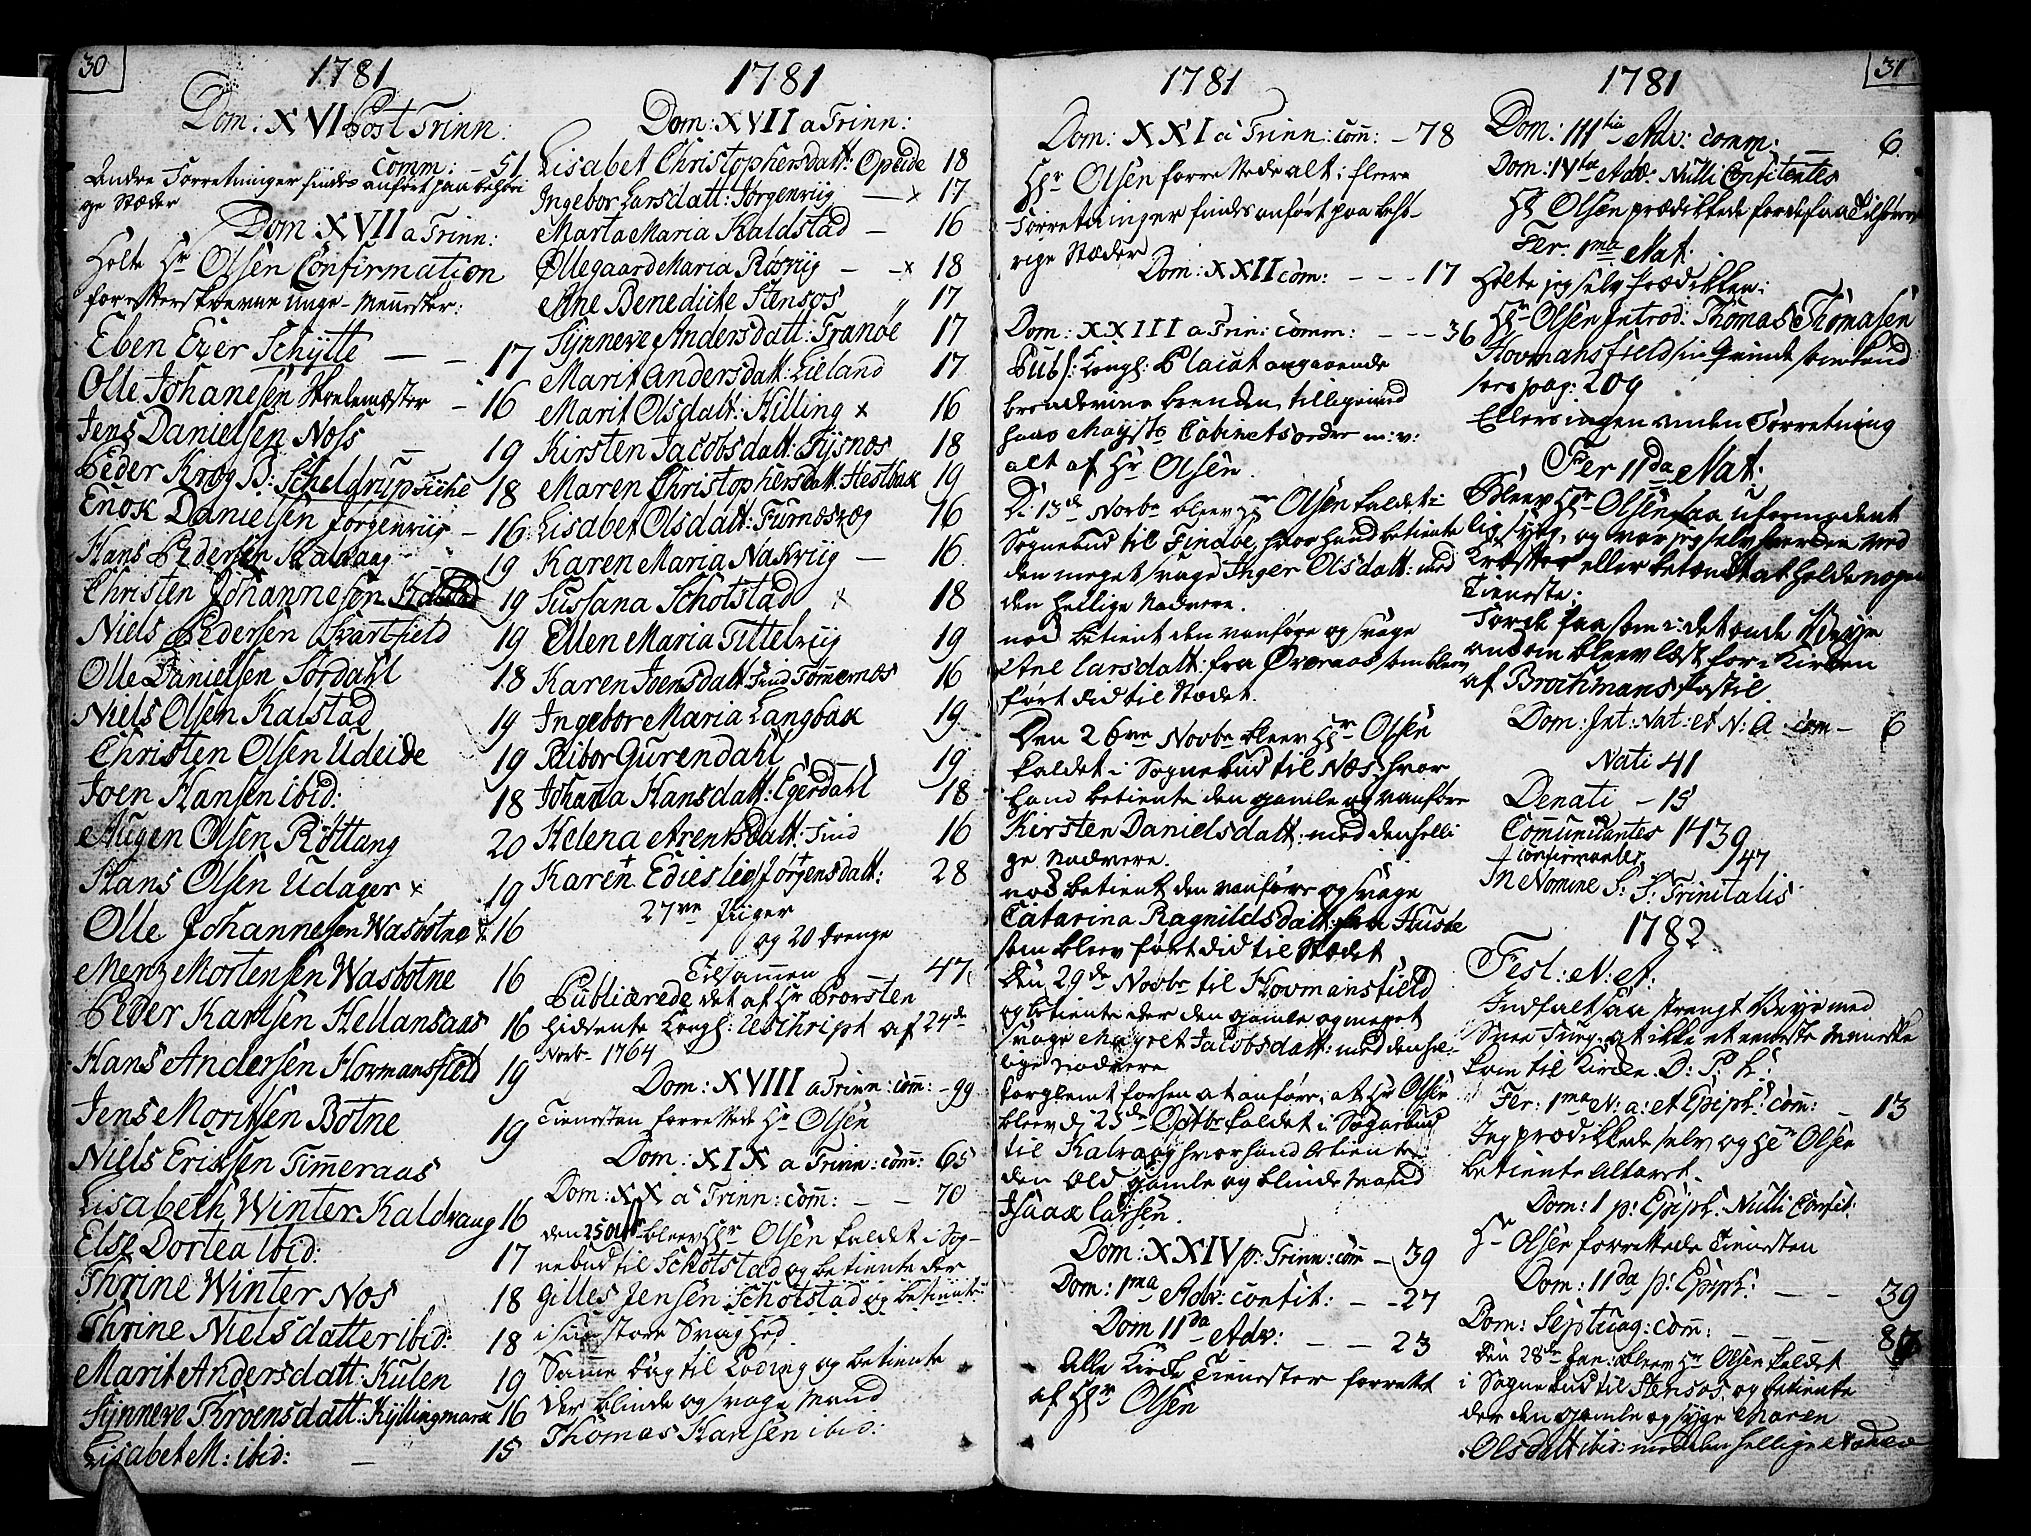 30
1781
Dom: XVI Post Trinn:
comm: - 51
Andre Forretninger findes anfört paa behöri
ge Stæder
Dom: XVII a Trinn:
Holte Hr Olsen Confirmation
for efterskrevne unge Mennesker:
Eben Ezer Schytte — — 17
Olle Johanesen Skolemester - 16
Jens Danielsen Noss — 19
Peder Krog B: Scheldrup 18
Enok Danielsen Jorgenriig - 16
Hans Pedersen Kalvaag 19
Christen Johannesen 19
Niels Pedersen Svartfield 19
Olle Danielsen Sördahl 18
Niels Olsen Kalstad 19
Christen Olsen Udeide 19
Joen Hansen ibid: 18
Augen Olsen Röttang 20
Hans Olsen Udager x 19
Olle Johannesen Wasbotne x 16
Menz Mortensen Wasbotne 16
Peder Karlsen Hellansaas 16
Hans Andersen Hovmansfield 19
Jens Moritsen Botne 19
Niels Eriksen Timeraas
Lisabeth Winter Kaldvaag 16
Else Dortea ibid: 17
Thrine Winter Nos 18
Thrine Nielsdatter ibid: 18
Marit Andersdatt: Kulen 19
Synneve Throensdatt: Kyllingmark 16
Lisabet M: ibid: — 15
1781
Dom: XVII a Trinn:
Lisabet Christophersdatt: Opeide 18
Ingebor Larsdatt: Jorgenriig — x 17
Marta Maria Kaldstad — 16
Øllegaard Maria Rösviig — - x 18
Ane Benedicte Stensos 17
Synneve Andersdatt: Tranöe 17
Marit Andersdatt: Lieland 17
Marit Olsdatt: Hilling x 16
Kirsten Jacobsdatt: Fysnæs 18
Maren Christophersdatt: Hestbak 19
Lisabet Olsdatt: Furnesvæg 16
Karen Maria Nakviig — 16
Sussana Schotstad x 18
Ellen Maria Tittelviig 19
Karen Joensdatt: Find Tömmernæs 16
Ingebor Maria Langbak 19
Ribor Gurendahl 19
Johana Hansdatt: Egerdahl 18
Helena Arentsdatt: Find 16
Karen Edislev Jörgensdatt: 28
27ve Piiger
og 20 Drenge
Tilsamen — 47
Publicerede det af Hr Provsten
hidsente Kongl: Reschript af 24de
Novbr 1764
Dom: XVIII a Trinn: comm: - 99
Tienesten forrettede Hr Olsen
Dom: XIX a Trinn: comm: 65
Dom: XX a Trinn: comm: — - 70
den 25 bleev Hr Olsen kaldet i Sog-
nebud til Schotstad og betiente der
Gilles Jensen Schotstad og betiente
i sin store Svaghed
Same Dag til Löding og betiente
der blinde og svage Mand
Thomas Hansen ibid:
1781
Dom: XXI a Trinn: comm: - 78
Hr Olsen forrettede alt: flere
Forretninger findes anfört paa behö-
rige Stæder
Dom: XXII com: - - - 17
Dom: XXIII a Trin: comm: - - - 36
Publ: Kongl: Placat angaaende
brendeviins brenden, tilligemed
hans Mayts Cabinetsorder m: v:
alt af Hr Olsen.
D: 13de Novbr bleev Hr Olsen kaldet i
Sognebud til Finöbe, hvor hand betiente
den meget svage Inger Olsdatt: med
den hellige Nadvere.
nok betient den vanföre og svage
Ane Larsdatt: fra Overaas som blev
fört did til Stædet.
Den 26ve Novbr bleev Hr Olsen
kaldet i Sognebud til Næs, hvor
hand betiente den gamle og vanföre
Kirsten Danielsdatt: med den helli
ge Nadvere.
nok betient den vanföre og svage
Catarina Ragnildsdatt: fra Huste
som bleev fört did til Stædet
Den 29de Novbr til Hovmansfield
og betiente der den gamle og meget
svage Magret Jacobsdatt: med den hel-
lige Nadvere
forglemt forhen at anföre, at Hr Olsen
bleev d: 25de Octbr kaldet i Sognebud
til Kalvaag hvor hand betiente
den Old gamle og blinde Mand
Isaax Larsen.
Dom: XXIV p: Trinn: comm - 39
Dom: 1ma Adv: confit: - - 27
Dom 11da Adv: - - 23
Alle Kirke Tienester forrett
af Hr Olsen
31
1781
Dom: 111tia Adv: comm: — 6
Dom: IVta Adv: Nulli Confitentes
Hr Olsen prædikkede for de faa Tilhörere
Fer: 1ma Nat:
Holte jeg selv Prædikken:
Hr Olsen Introd: Thomas Thomasen
Hovmansfield sin Qvinde
pag: 209
Ellers ingen anden Forretning
Fer 11da Nat:
Bleev Hr Olsen saa uformodent
lig syg, og var jeg selv hverken ved
Kræfter eller betænkt at holde nogen
Tieneste;
Torde saasom i det onde Veyr
andom bleev læst for i Kirken
af Brochmans Postil
Dom: Int: Nat: et N: A com - 6
Nati 41
Denati - 15
Comunicantes 1439
Confirmantes 47
In Nomine S: S: Trinitatis
1782
Fest: N: A:
Indfalt saa strengt Veyr med
Snee Fug, at ikke et eneste Meneske
kom til Kirke. D: P: K:
Fer: 1ma N: a: et Epiph: comm: - 13
Jeg prædikkede selv og Hr Olsen
betiente Alteret.
Dom: 1 p: Epiph: Nulli Confit:
Hr Olsen forrettede Tienesten
Dom: 11da p: Epiph: - - 39
Dom: Septuag: comm: - - -
Den 28de Jan: bleev Hr Olsen kaldet
i Sognebud til Stensos, og betiente
der den gamle og syge Maren
Olsdatt ibid: med den hellige Nadver